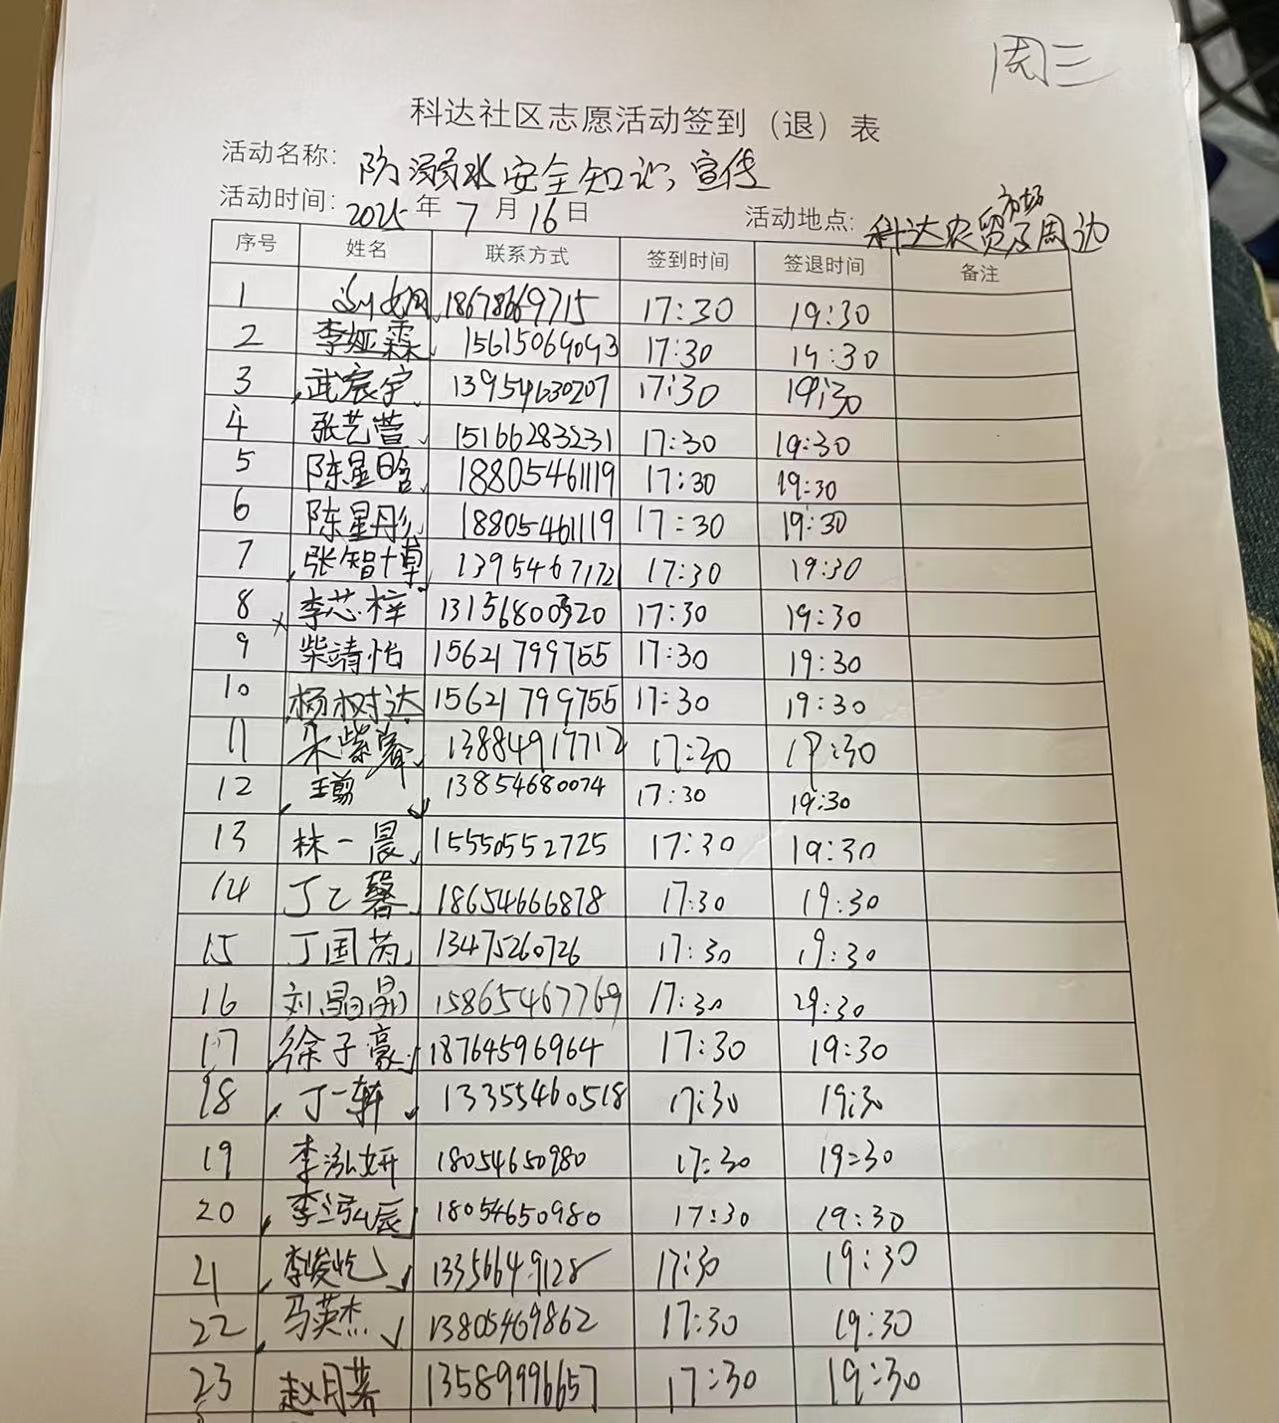 周三
科达社区志愿活动签到（退）表
活动名称: 防溺水安全知识宣传
活动时间: 2025年7月16日 活动地点: 科达农贸市场及周边
序号 姓名 联系方式 签到时间 签退时间 备注
1 18678669715 17:30 19:30
2 李娅霖 15615069093 17:30 19:30
3 武宸宇 13954630207 17:30 19:30
4 张艺萱 15166283231 17:30 19:30
5 陈星晗 18805461119 17:30 19:30
6 陈星彤 18805461119 17:30 19:30
7 张智博 13954671721 17:30 19:30
8 李芯梓 17:30 19:30
9 柴靖怡 15621799755 17:30 19:30
10 杨树达 15621799755 17:30 19:30
11 朱紫睿 13884917712 17:30 19:30
12 王翦 13854680074 17:30 19:30
13 林一晨 15550552725 17:30 19:30
14 丁乙馨 18654666878 17:30 19:30
15 丁国芮 13475260726 17:30 19:30
16 刘晶晶 15865467769 17:30 29:30
17 徐子豪 18764596964 17:30 19:30
18 丁一轩 13355460518 17:30 19:30
19 李泓妍 18054650980 17:30 19:30
20 李泓辰 18054650980 17:30 19:30
21 李俊屹 13356649128 17:30 19:30
22 马英杰 13805469862 17:30 19:30
23 赵月 13589996657 17:30 19:30